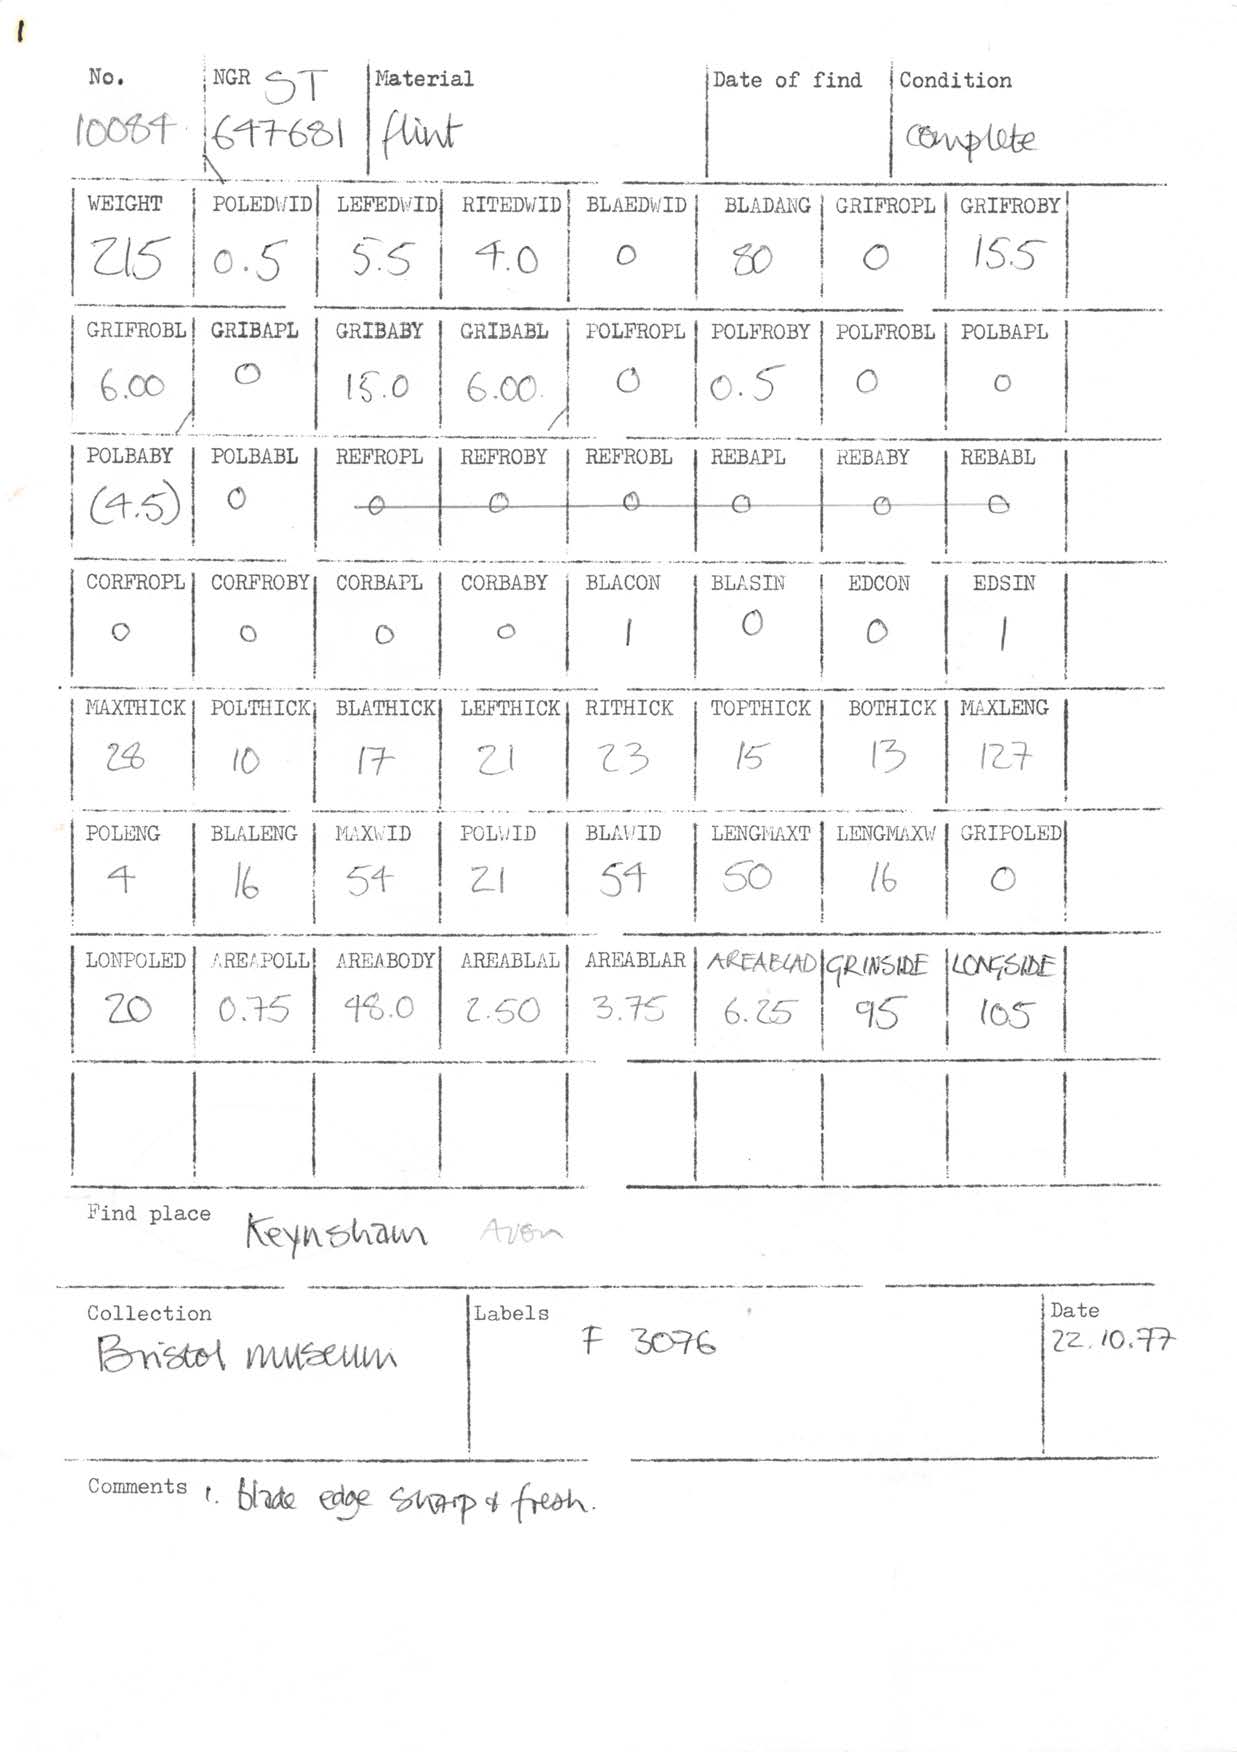 1
No. NGR ST Material Date of find Condition
10084 647681 flint complete
WEIGHT POLEDWID LEFEDWID RITEDWID BLAEDWID BLADANG GRIFROPL GRIFROBY
215 0.5 5.5 4.0 0 80 0 15.5
GRIFROBL GRIBAPL GRIBABY GRIBABL POLFROPL POLFROBY POLFROBL POLBAPL
6.00 0 15.0 6.00 0 0.5 0 0
POLBABY POLBABL REFROPL REFROBY REFROBL REBAPL REBABY REBABL
(4.5) 0 0 0 0 0 0 0
CORFROPL CORFROBY CORBAPL CORBABY BLACON BLASIN EDCON EDSIN
0 0 0 0 1 0 0 1
MAXTHICK POLTHICK BLATHICK LEFTHICK RITHICK TOPTHICK BOTHICK MAXLENG
28 10 17 21 23 15 13 127
POLENG BLALENG MAXWID POLWID BLAWID LENGMAXT LENGMAXW GRIPOLED
4 16 54 21 54 50 16 0
LONPOLED AREAPOLL AREABODY AREABLAL AREABLAR AREABLAD GRINSIDE LONGSIDE
20 0.75 48.0 2.50 3.75 6.25 95 105
Find place Keynsham Avon
Collection Labels Date
Bristol museum F 3076 22.10.77
Comments 1. blade edge sharp & fresh.